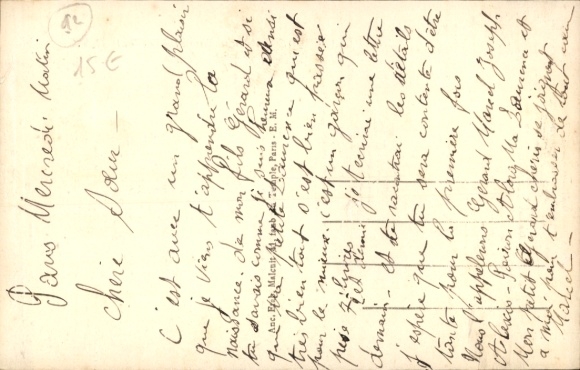 92
15 €
Paris Mercredi Matin
Chère Soeur —
C'est avec un grand plaisir
que je viens t'apprendre la
naissance de mon fils Gérard et si
tu savais comme je suis heureux ainsi
que ma petite Laurence qui est
très bien tout s'est bien passé
pour le mieux. C'est un garçon qui
pèse 7 livres et demie je t'écrirai une lettre
demain et te raconterai les détails
J'espère que tu sera contente d'être
tante pour la première fois
Nous l'appelerons Gérard Marcel Joseph
Alors Ma Laurence et
Mon petit Gérard chéris se joignent
a moi pour t'embrasser de tout coeur
Marcel —
Anc. Et. Malcuit, Paris - E. M.